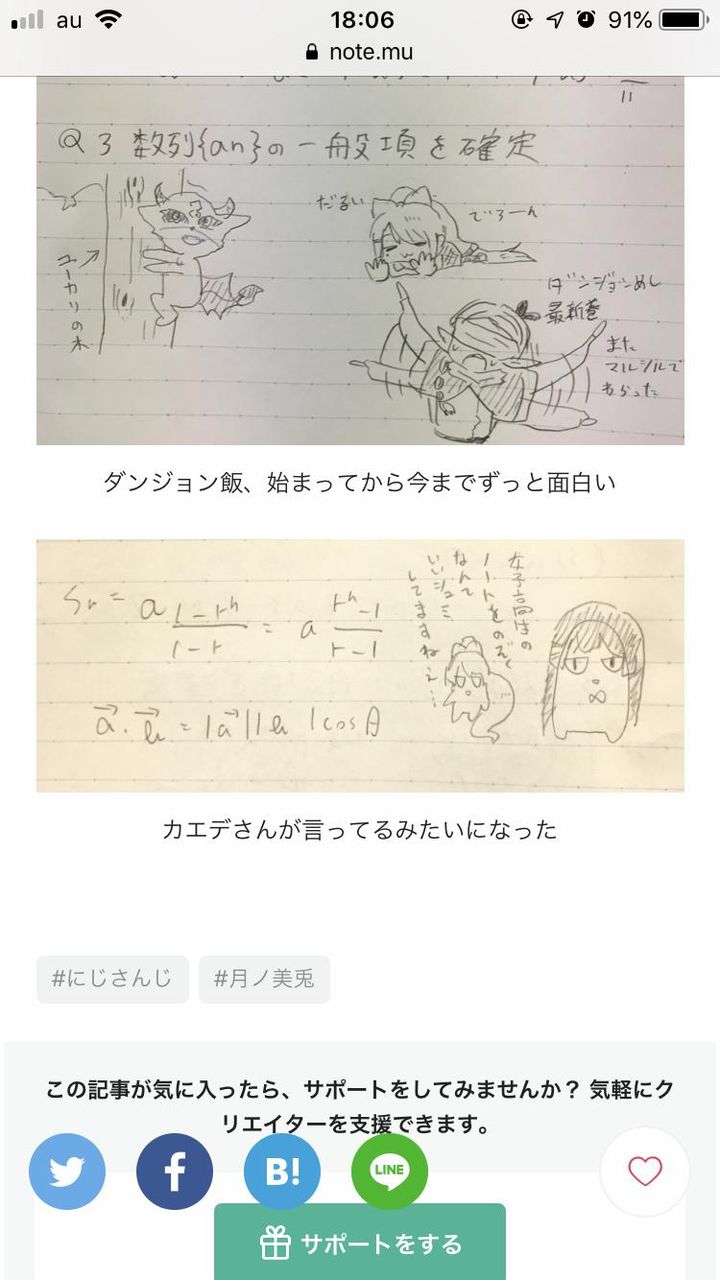 au
18:06
91%
note.mu
11
Q3 数列{an}の一般項を確定
ユーカリの木
だるい
でろーん
ダンジョンめし
最新巻
また
マルシルで
わらった
ダンジョン飯、始まってから今までずっと面白い
Sn = a 1-r^n / 1-r = a r^n-1 / r-1
女子高生の
ノートをのぞく
なんて
いいシュミ
してますねぇ…
a・b = |a||b|cosθ
カエデさんが言ってるみたいになった
#にじさんじ
#月ノ美兎
この記事が気に入ったら、サポートをしてみませんか？ 気軽にク
リエイターを支援できます。
B!
LINE
サポートをする